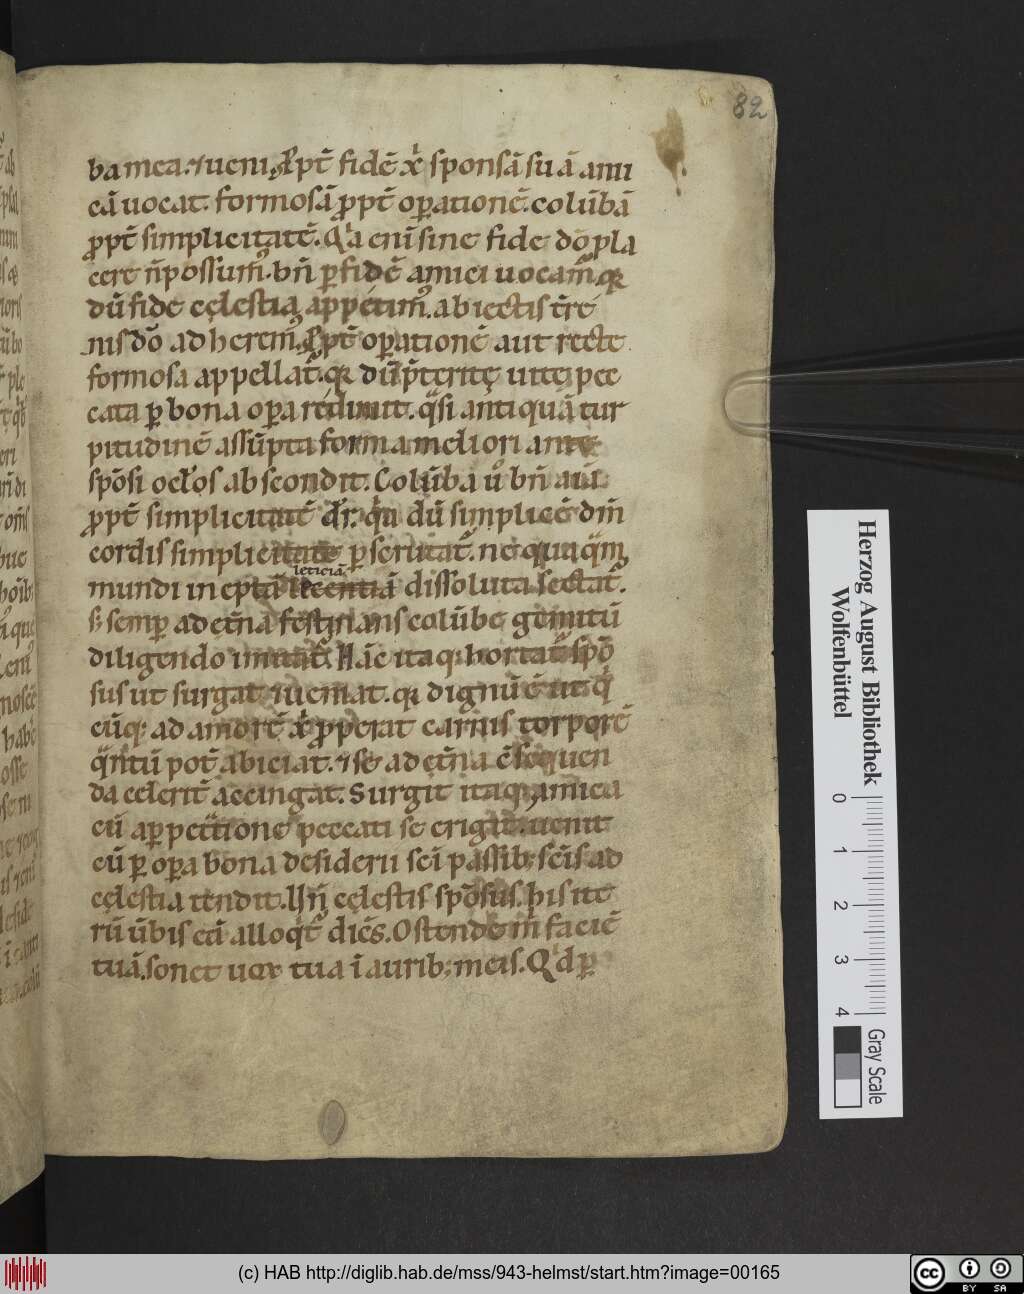 82
ba mea. ⁊ ueni. Ꝓpt̄ fidē xp̄ sponsā suā ami
cā uocat. formosā ꝓpt̄ oꝑationē. colūbā
ꝓpt̄ simplicitatē. Qͥa eni sine fide dō pla
cere n̄ possum᷒. bn̄ ꝑ fidē amici uocam᷒. qꝛ
dū fide cęlestia appetim᷒. abiectis t̄re
nis dō ad herem᷒. Ꝓpt̄ oꝑationē aut recte
formosa appellat᷒. qꝛ dū p̄teritę uitę pec
cata ꝑ bona oꝑa redimit. qͣsi antiquā tur
pitudinē assūpta forma meliori ante
spōsi ocl̓os abscondit. Colūba u͛ bn̄
ꝓpt̄ simplicitatē dr̄. qͥa dū simplicē dn̄i
cordis simplicitate ꝑscrutat᷒. nequaqͣm
leticiā
mundi ineptā licentiā dissoluta sectat᷒.
sꝫ semꝑ ad et̄na festinans colūbe gemitū
diligendo imitat᷒. Hāc itaqꝫ hortat᷒ spō
sus ut surgat ⁊ ueniat. qꝛ dignū ē ut qͥ
cūqꝫ ad amorē xp̄i ꝓperat carnis torporē
qͣntū pot̄ abiciat. ⁊ se ad et̄na cōsequen
da celerit̄ accingat. Surgit itaqꝫ amica
cū aꝑ petitione peccati se erigit. uenit
cū ꝑ oꝑa bona desiderii sci passibꝫ scis ad
cęlestia tendit. Hn̄c cęlestis spōsus. his ite
rū ūbis eā alloqͥt᷒ dicēs. Ostende m̄ faciē
tuā. sonet uox tua ī auribꝫ meis. Qͥd ꝑ
Herzog August Bibliothek
Wolfenbüttel
0 1 2 3 4
Gray Scale
(c) HAB http://diglib.hab.de/mss/943-helmst/start.htm?image=00165
cc BY SA